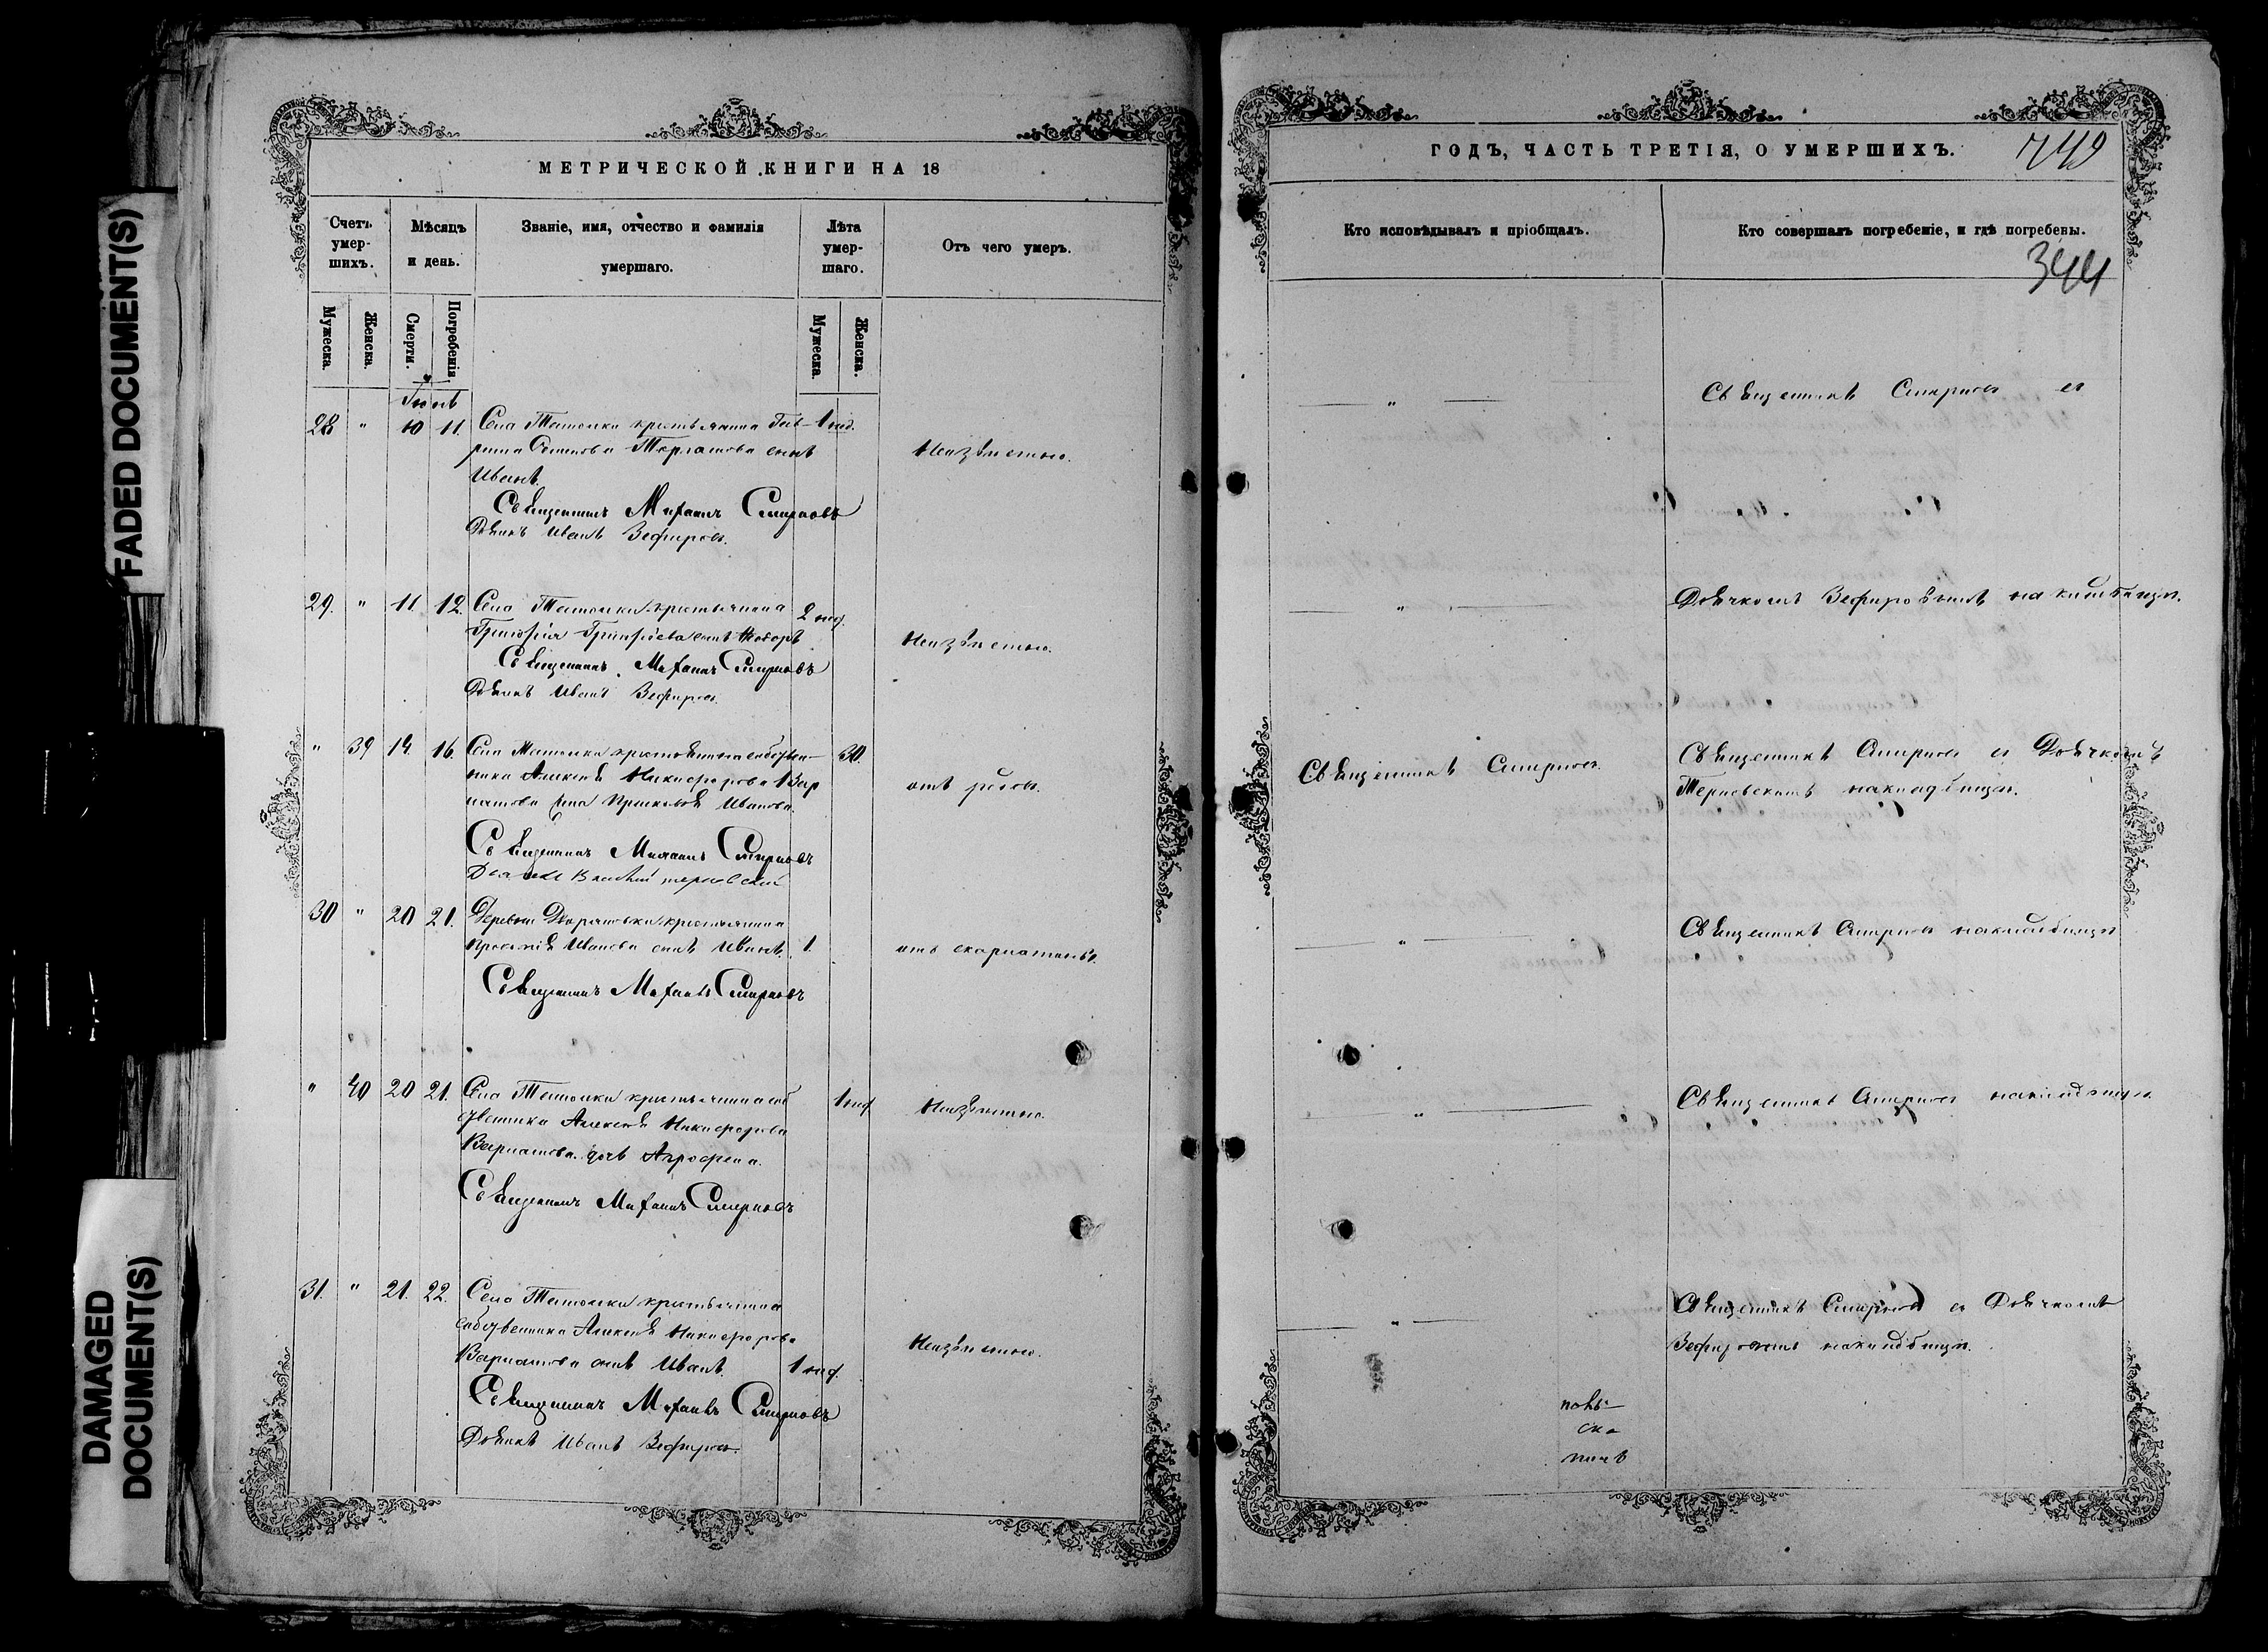 FADED DOCUMENT(S)
DAMAGED
DOCUMENT(S)
МЕТРИЧЕСКОЙ КНИГИ НА 18
Счетъ умер-шихъ.
Мѣсяцъ и день.
Званіе, имя, отчество и фамилія умершаго.
Лѣта умер-шаго.
Отъ чего умеръ.
Мужеска.
Женска.
Смерти.
Погребенія
Мужеска.
Женска.
28 " 10 11. Села крестьянина 1 нед.
сынъ Неизвѣстно.
Иванъ.
Священникъ Михаилъ Смирновъ
Дьячкъ Иванъ Зефировъ.
29. " 11. 12. Села крестьянина 2 нед.
Григорія Григорьева сынъ Неизвѣстно.
Священникъ Михаилъ Смирновъ
Дьячкъ Иванъ Зефировъ.
" 39 14. 16. Села крестьянина собствен- 30.
ника Алексѣя Никифорова отъ родовъ.
жена Иванова.
Священникъ Михаилъ Смирновъ
30 " 20 21. Деревни крестьянина
Иванова сынъ Иванъ. 1. отъ скарлатины.
Священникъ Михаилъ Смирновъ
" 40 20 21. Села крестьянина соб 1 нед. Неизвѣстно.
ственика Алексѣя Никифорова
дочь Агрофена.
Священникъ Михаилъ Смирновъ
31. " 21. 22. Села крестьянина
собственика Алексѣя Никифорова Неизвѣстно.
сынъ Иванъ. 1 нед.
Священникъ Михаилъ Смирновъ
Дьячкъ Иванъ Зефировъ.
ГОДЪ, ЧАСТЬ ТРЕТІЯ, О УМЕРШИХЪ.
749
Кто исповѣдывалъ и пріобщалъ.
Кто совершалъ погребеніе, и гдѣ погребены.
344
" Священникъ Смирновъ съ
" Дьячкомъ Зефировымъ на кладбищѣ.
Священникъ Смирновъ. Священникъ Смирновъ съ Дьячкомъ
на кладбищѣ.
" Священникъ Смирновъ на кладбищѣ
" Священникъ Смирновъ на кладбищѣ
" Священникъ Смирновъ съ Дьячкомъ
Зефировымъ на кладбищѣ.